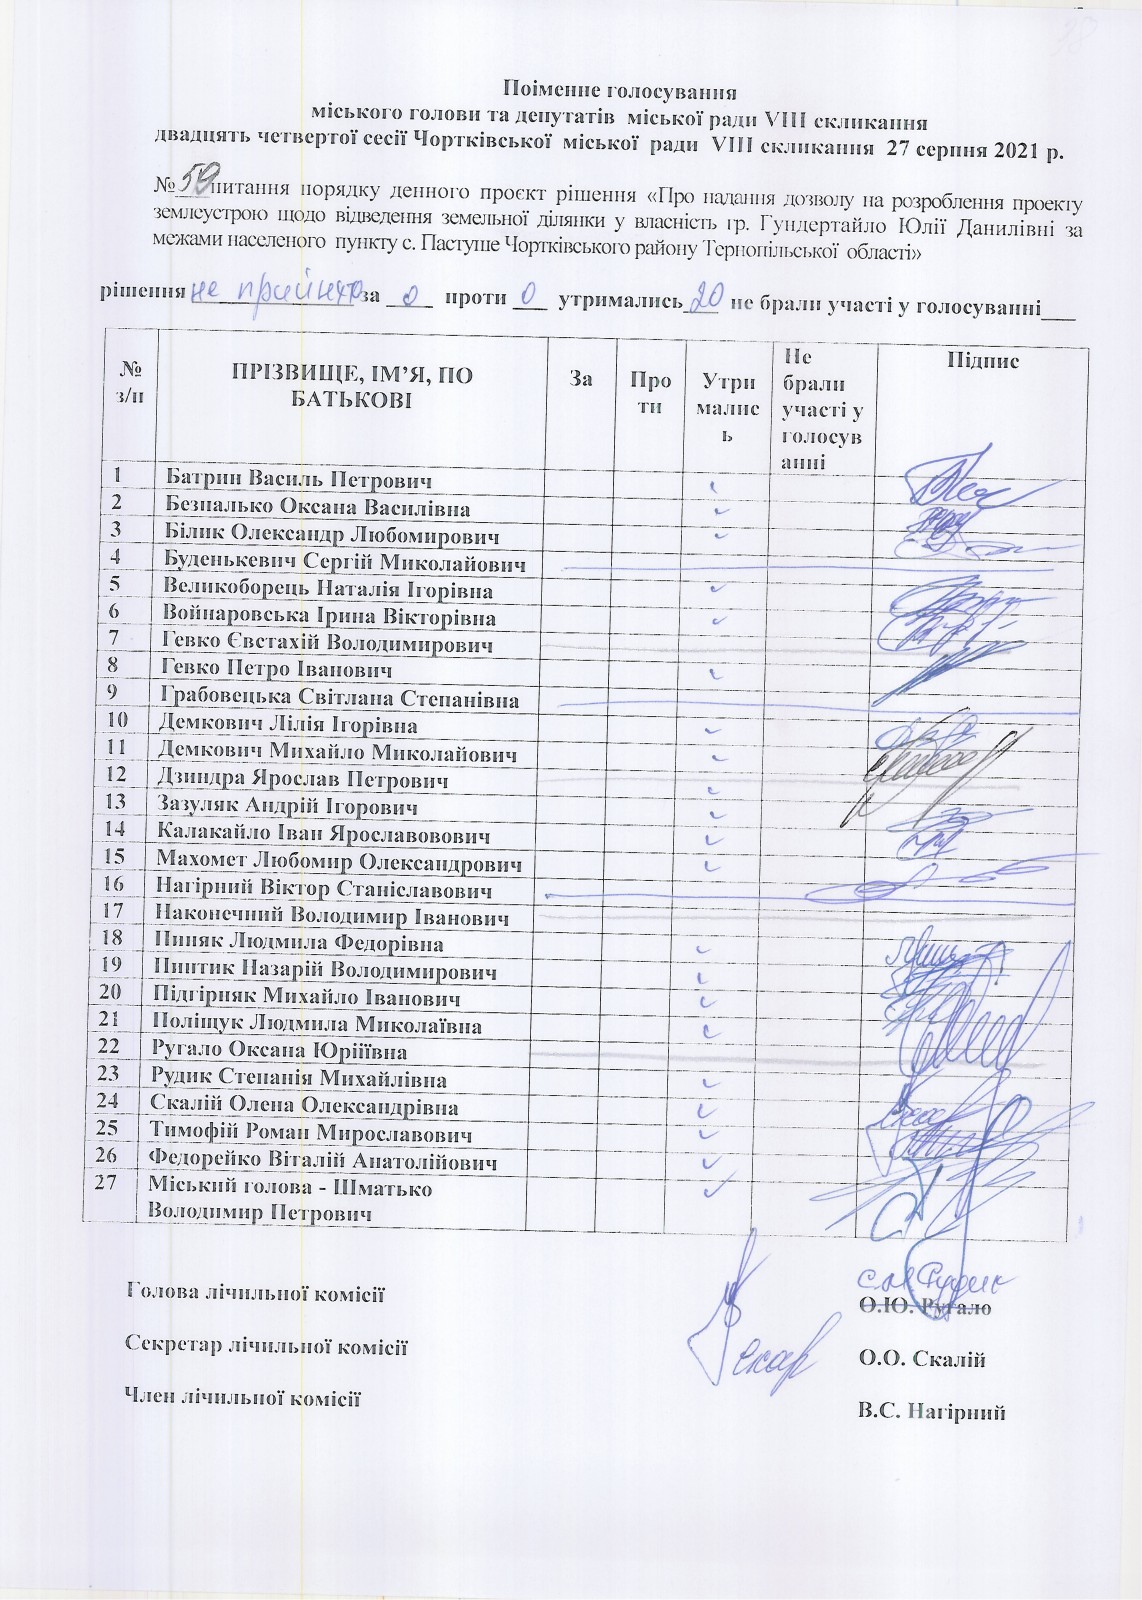 Поіменне голосування
міського голови та депутатів міської ради VIII скликання
двадцять четвертої сесії Чортківської міської ради VIII скликання 27 серпня 2021 р.
№ 59 питання порядку денного проєкт рішення «Про надання дозволу на розроблення проекту
землеустрою щодо відведення земельної ділянки у власність гр. Гундертайло Юлії Данилівні за
межами населеного пункту с. Пастуше Чортківського району Тернопільської області»
рішення не прийнято за 0 проти 0 утримались 20 не брали участі у голосуванні___
№ з/п ПРІЗВИЩЕ, ІМ’Я, ПО БАТЬКОВІ За Проти Утримались Не брали участі у голосуванні Підпис
1 Батрин Василь Петрович
2 Безпалько Оксана Василівна
3 Білик Олександр Любомирович
4 Буденькевич Сергій Миколайович
5 Великоборець Наталія Ігорівна
6 Войнаровська Ірина Вікторівна
7 Гевко Євстахій Володимирович
8 Гевко Петро Іванович
9 Грабовецька Світлана Степанівна
10 Демкович Лілія Ігорівна
11 Демкович Михайло Миколайович
12 Дзиндра Ярослав Петрович
13 Зазуляк Андрій Ігорович
14 Калакайло Іван Ярославовович
15 Махомет Любомир Олександрович
16 Нагірний Віктор Станіславович
17 Наконечний Володимир Іванович
18 Пиняк Людмила Федорівна
19 Пинтик Назарій Володимирович
20 Підгірняк Михайло Іванович
21 Поліщук Людмила Миколаївна
22 Ругало Оксана Юріїївна
23 Рудик Степанія Михайлівна
24 Скалій Олена Олександрівна
25 Тимофій Роман Мирославович
26 Федорейко Віталій Анатолійович
27 Міський голова - Шматько
Володимир Петрович
Голова лічильної комісії О.Ю. Ругало
Секретар лічильної комісії О.О. Скалій
Член лічильної комісії В.С. Нагірний